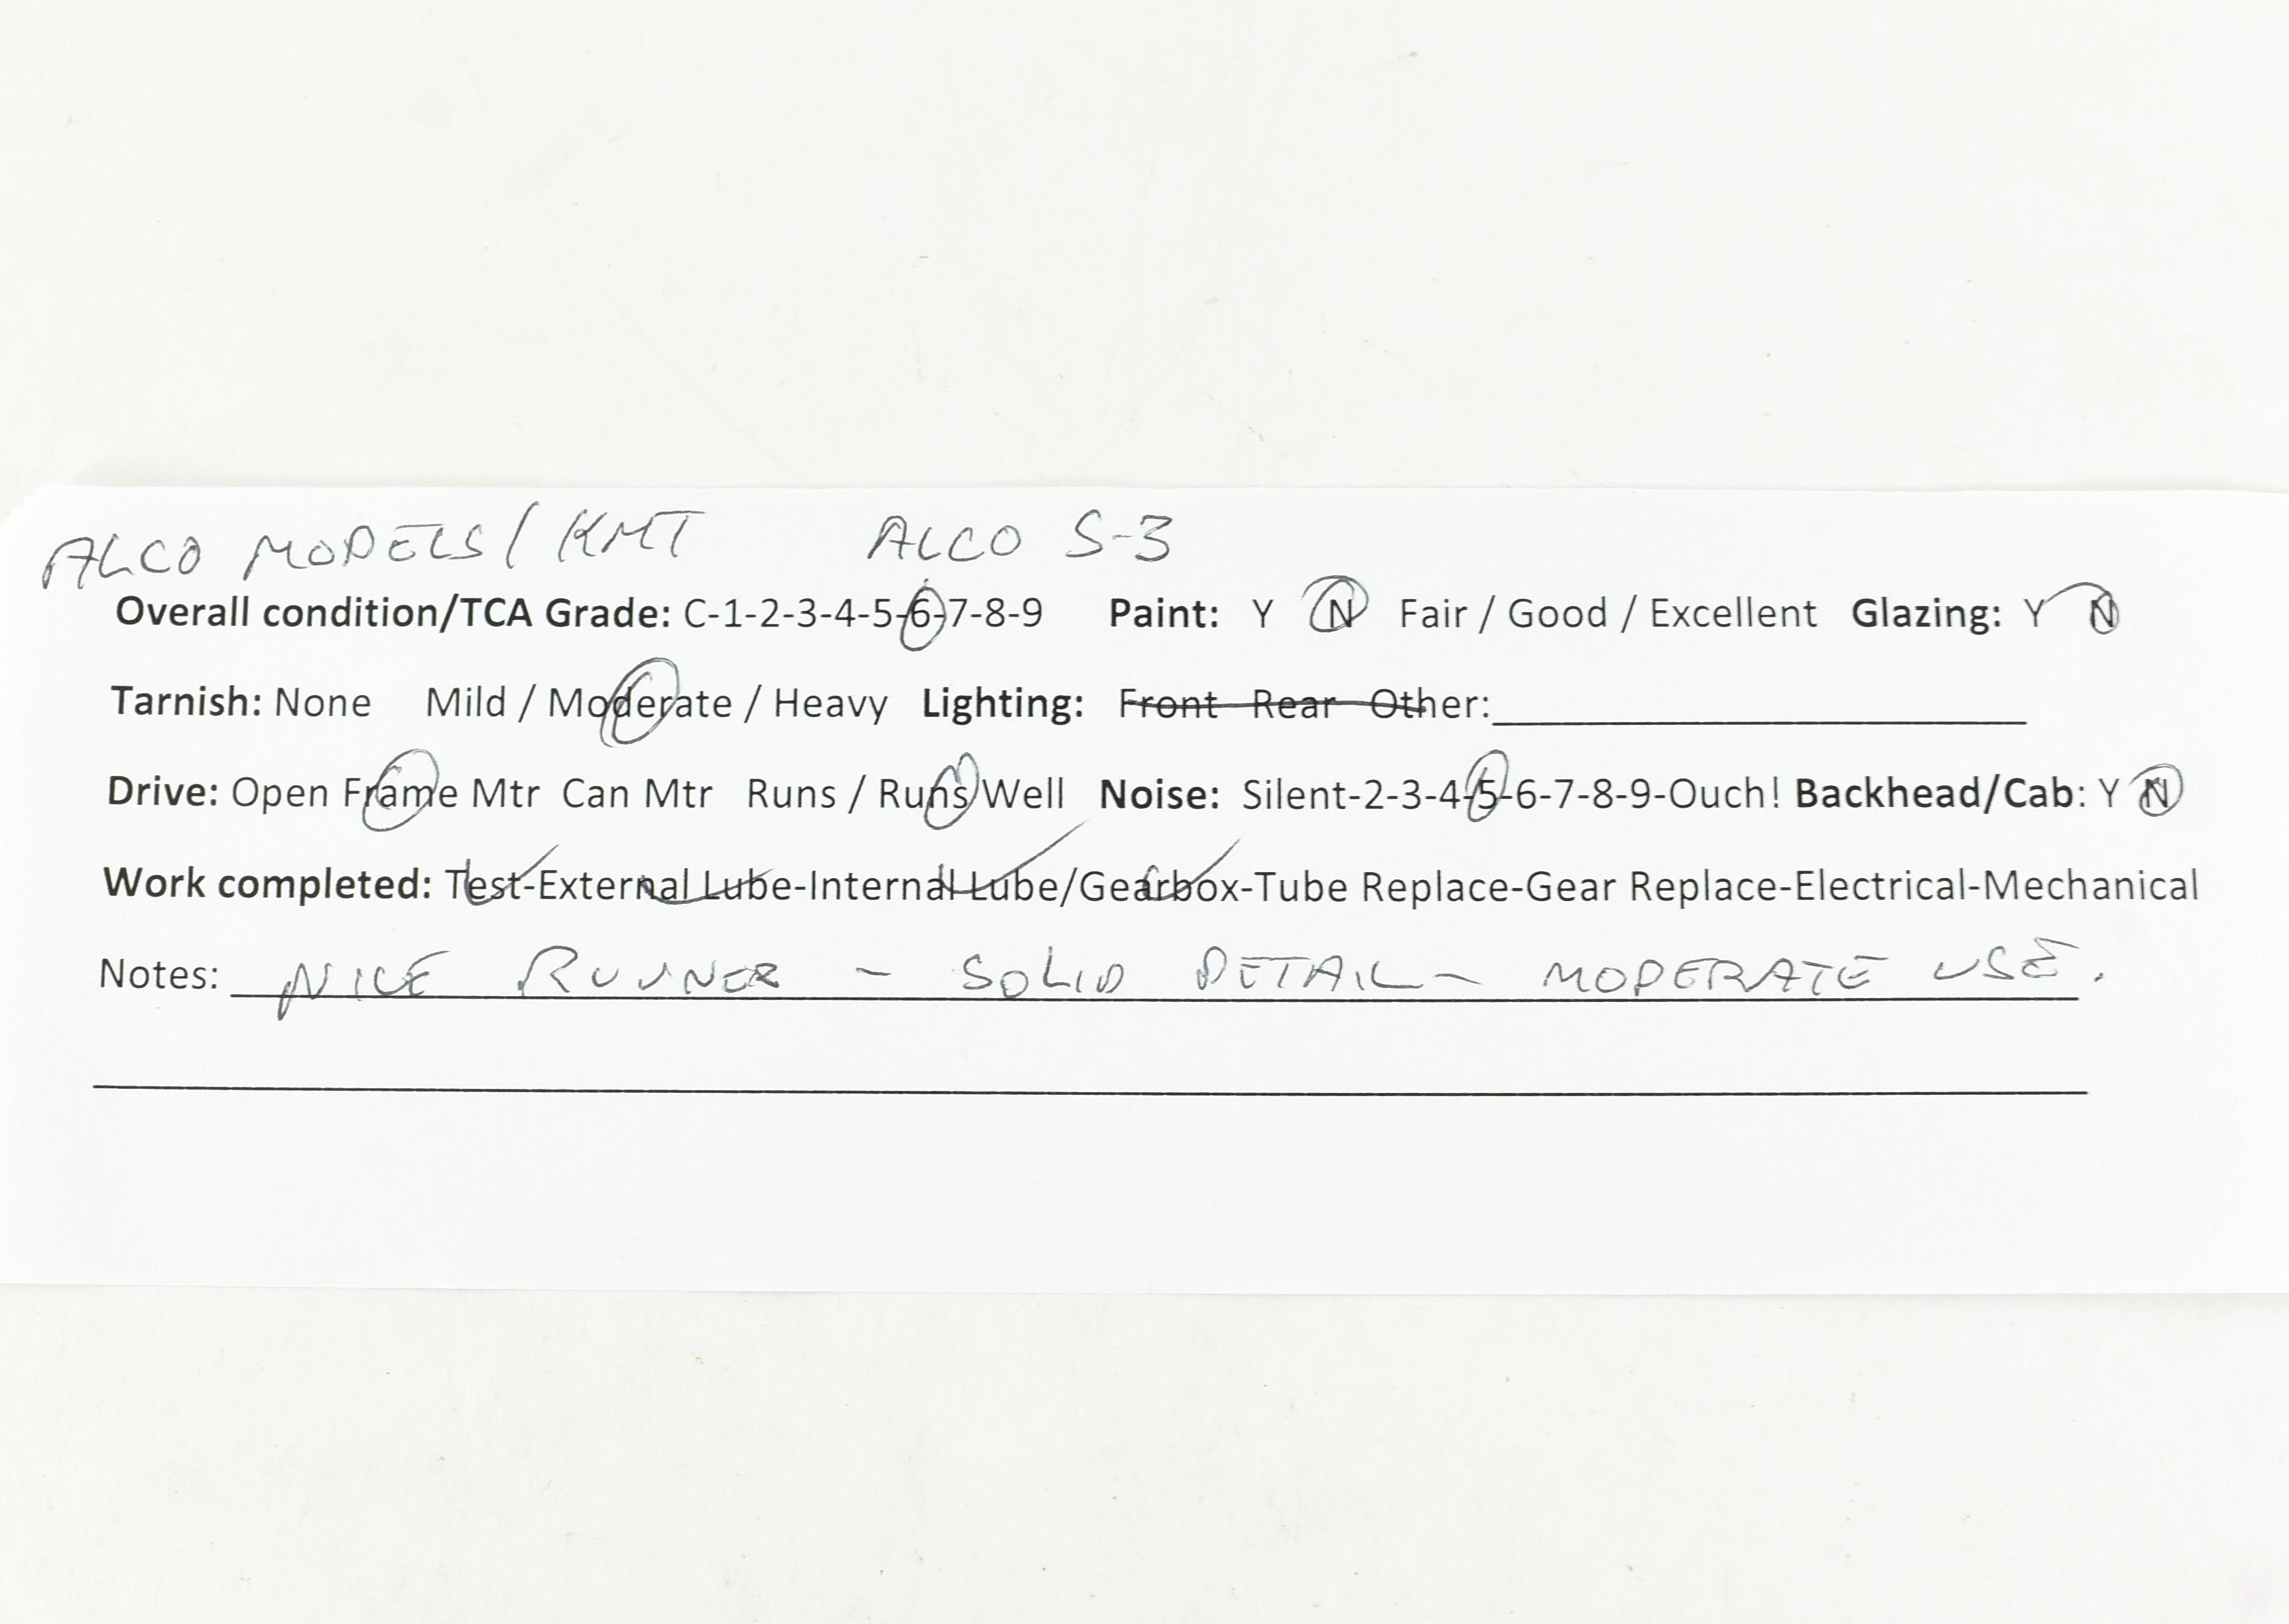 ALCO MODELS/KMT ALCO S-3
Overall condition/TCA Grade: C-1-2-3-4-5-6-7-8-9 Paint: Y N Fair / Good / Excellent Glazing: Y N
Tarnish: None Mild / Moderate / Heavy Lighting: Front Rear Other:
Drive: Open Frame Mtr Can Mtr Runs / Runs Well Noise: Silent-2-3-4-5-6-7-8-9-Ouch! Backhead/Cab: Y N
Work completed: Test-External Lube-Internal Lube/Gearbox-Tube Replace-Gear Replace-Electrical-Mechanical
Notes: NICE RUNNER - SOLID DETAIL - MODERATE USE.